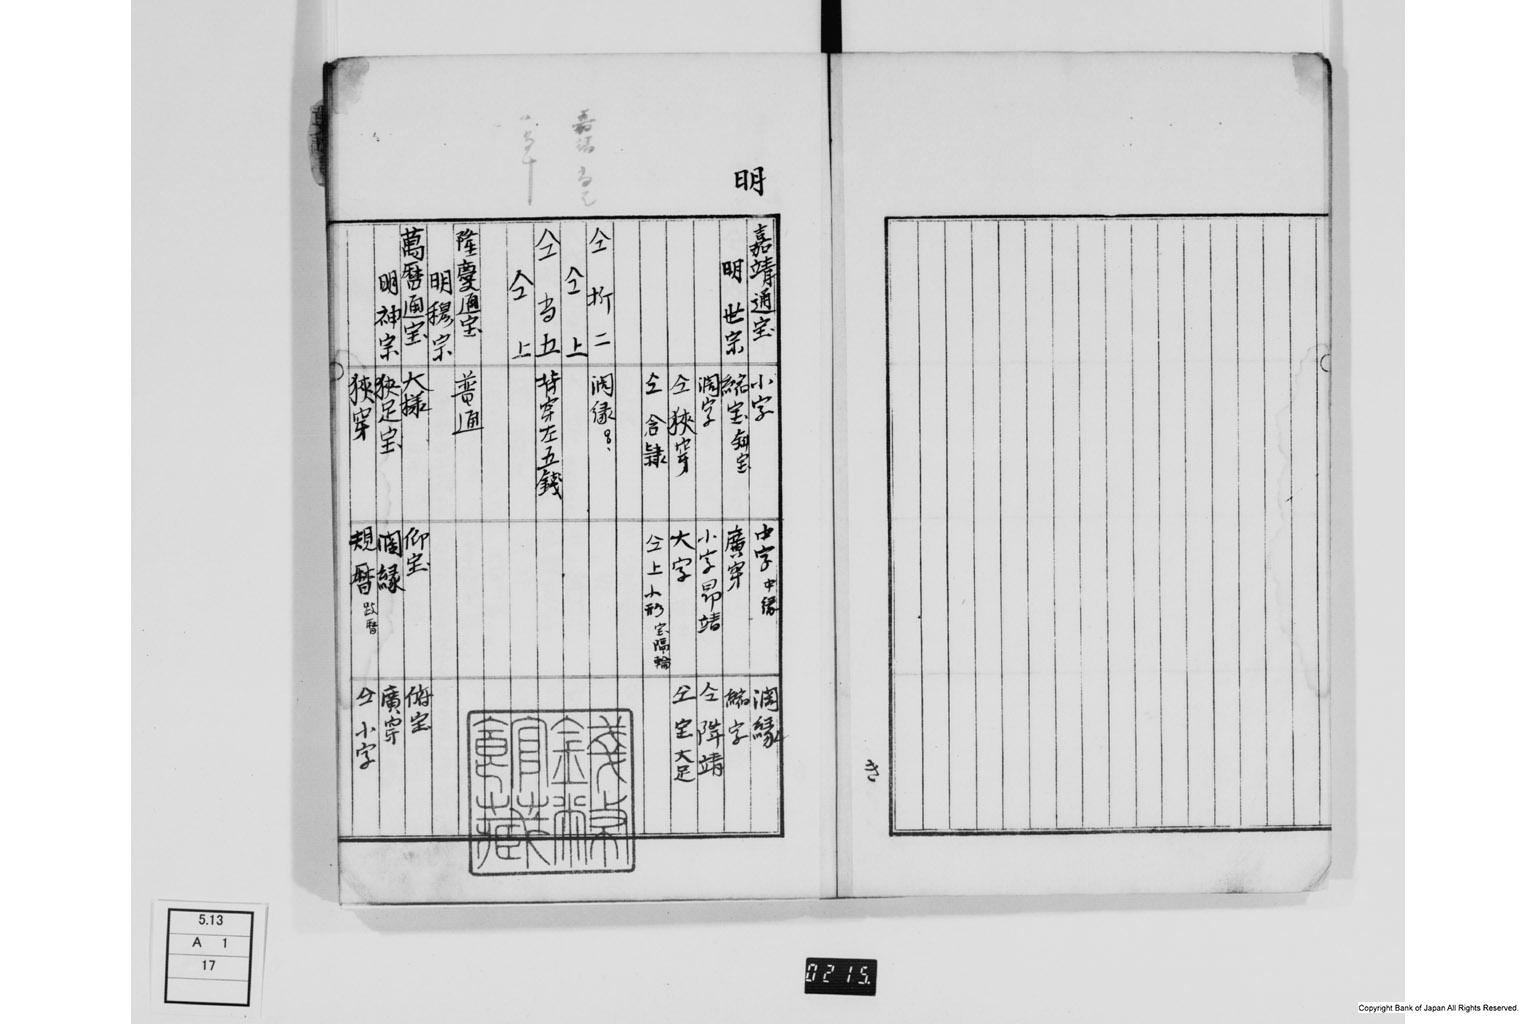 明
嘉靖通宝
明世宗
仝折二
仝上
仝当五
仝上
隆慶通宝
明穆宗
萬暦通宝
明神宗
小字
縮宝
濶字
仝狹穿
仝含隷
濶縁
背穿左五錢
普通
大様
狹足宝
狹穿
中字中縁
廣穿
小字昂靖
大字
仝上小形宝隔輪
仰宝
濶縁
規暦
濶縁
縮字
仝降靖
仝宝大足
俯宝
廣穿
仝小字
き
5.13
A 1
17
0215.
Copyright Bank of Japan All Rights Reserved.